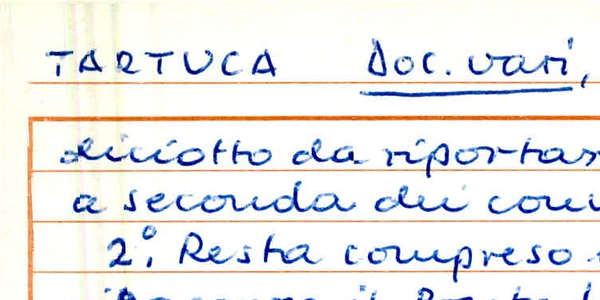 TARTUCA Doc. vari,
diciotto da riportar
a seconda dei com
2º: Resta compreso
il